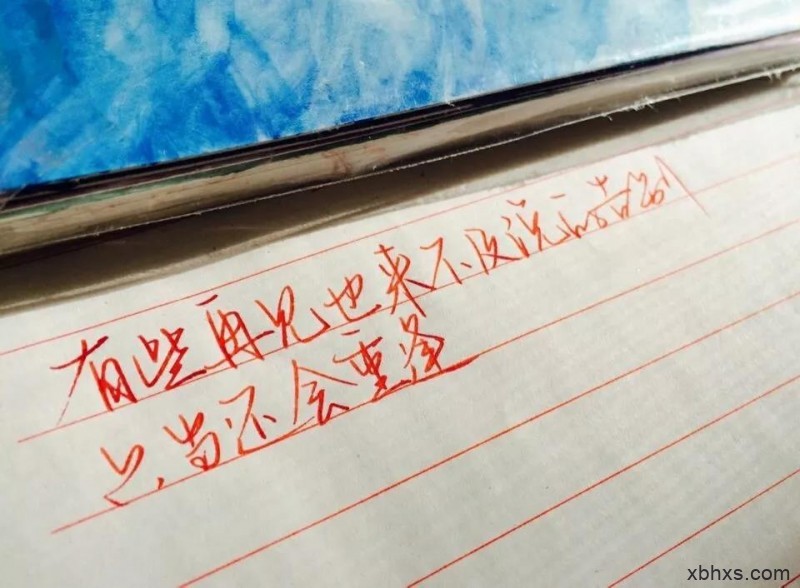 有些再见也来不及说告别
只当还会重逢
xbhxs.com